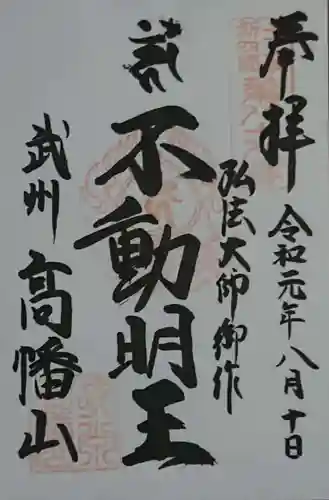 奉拝
令和元年八月十日
弘法大師御作
不動明王
武州 高幡山